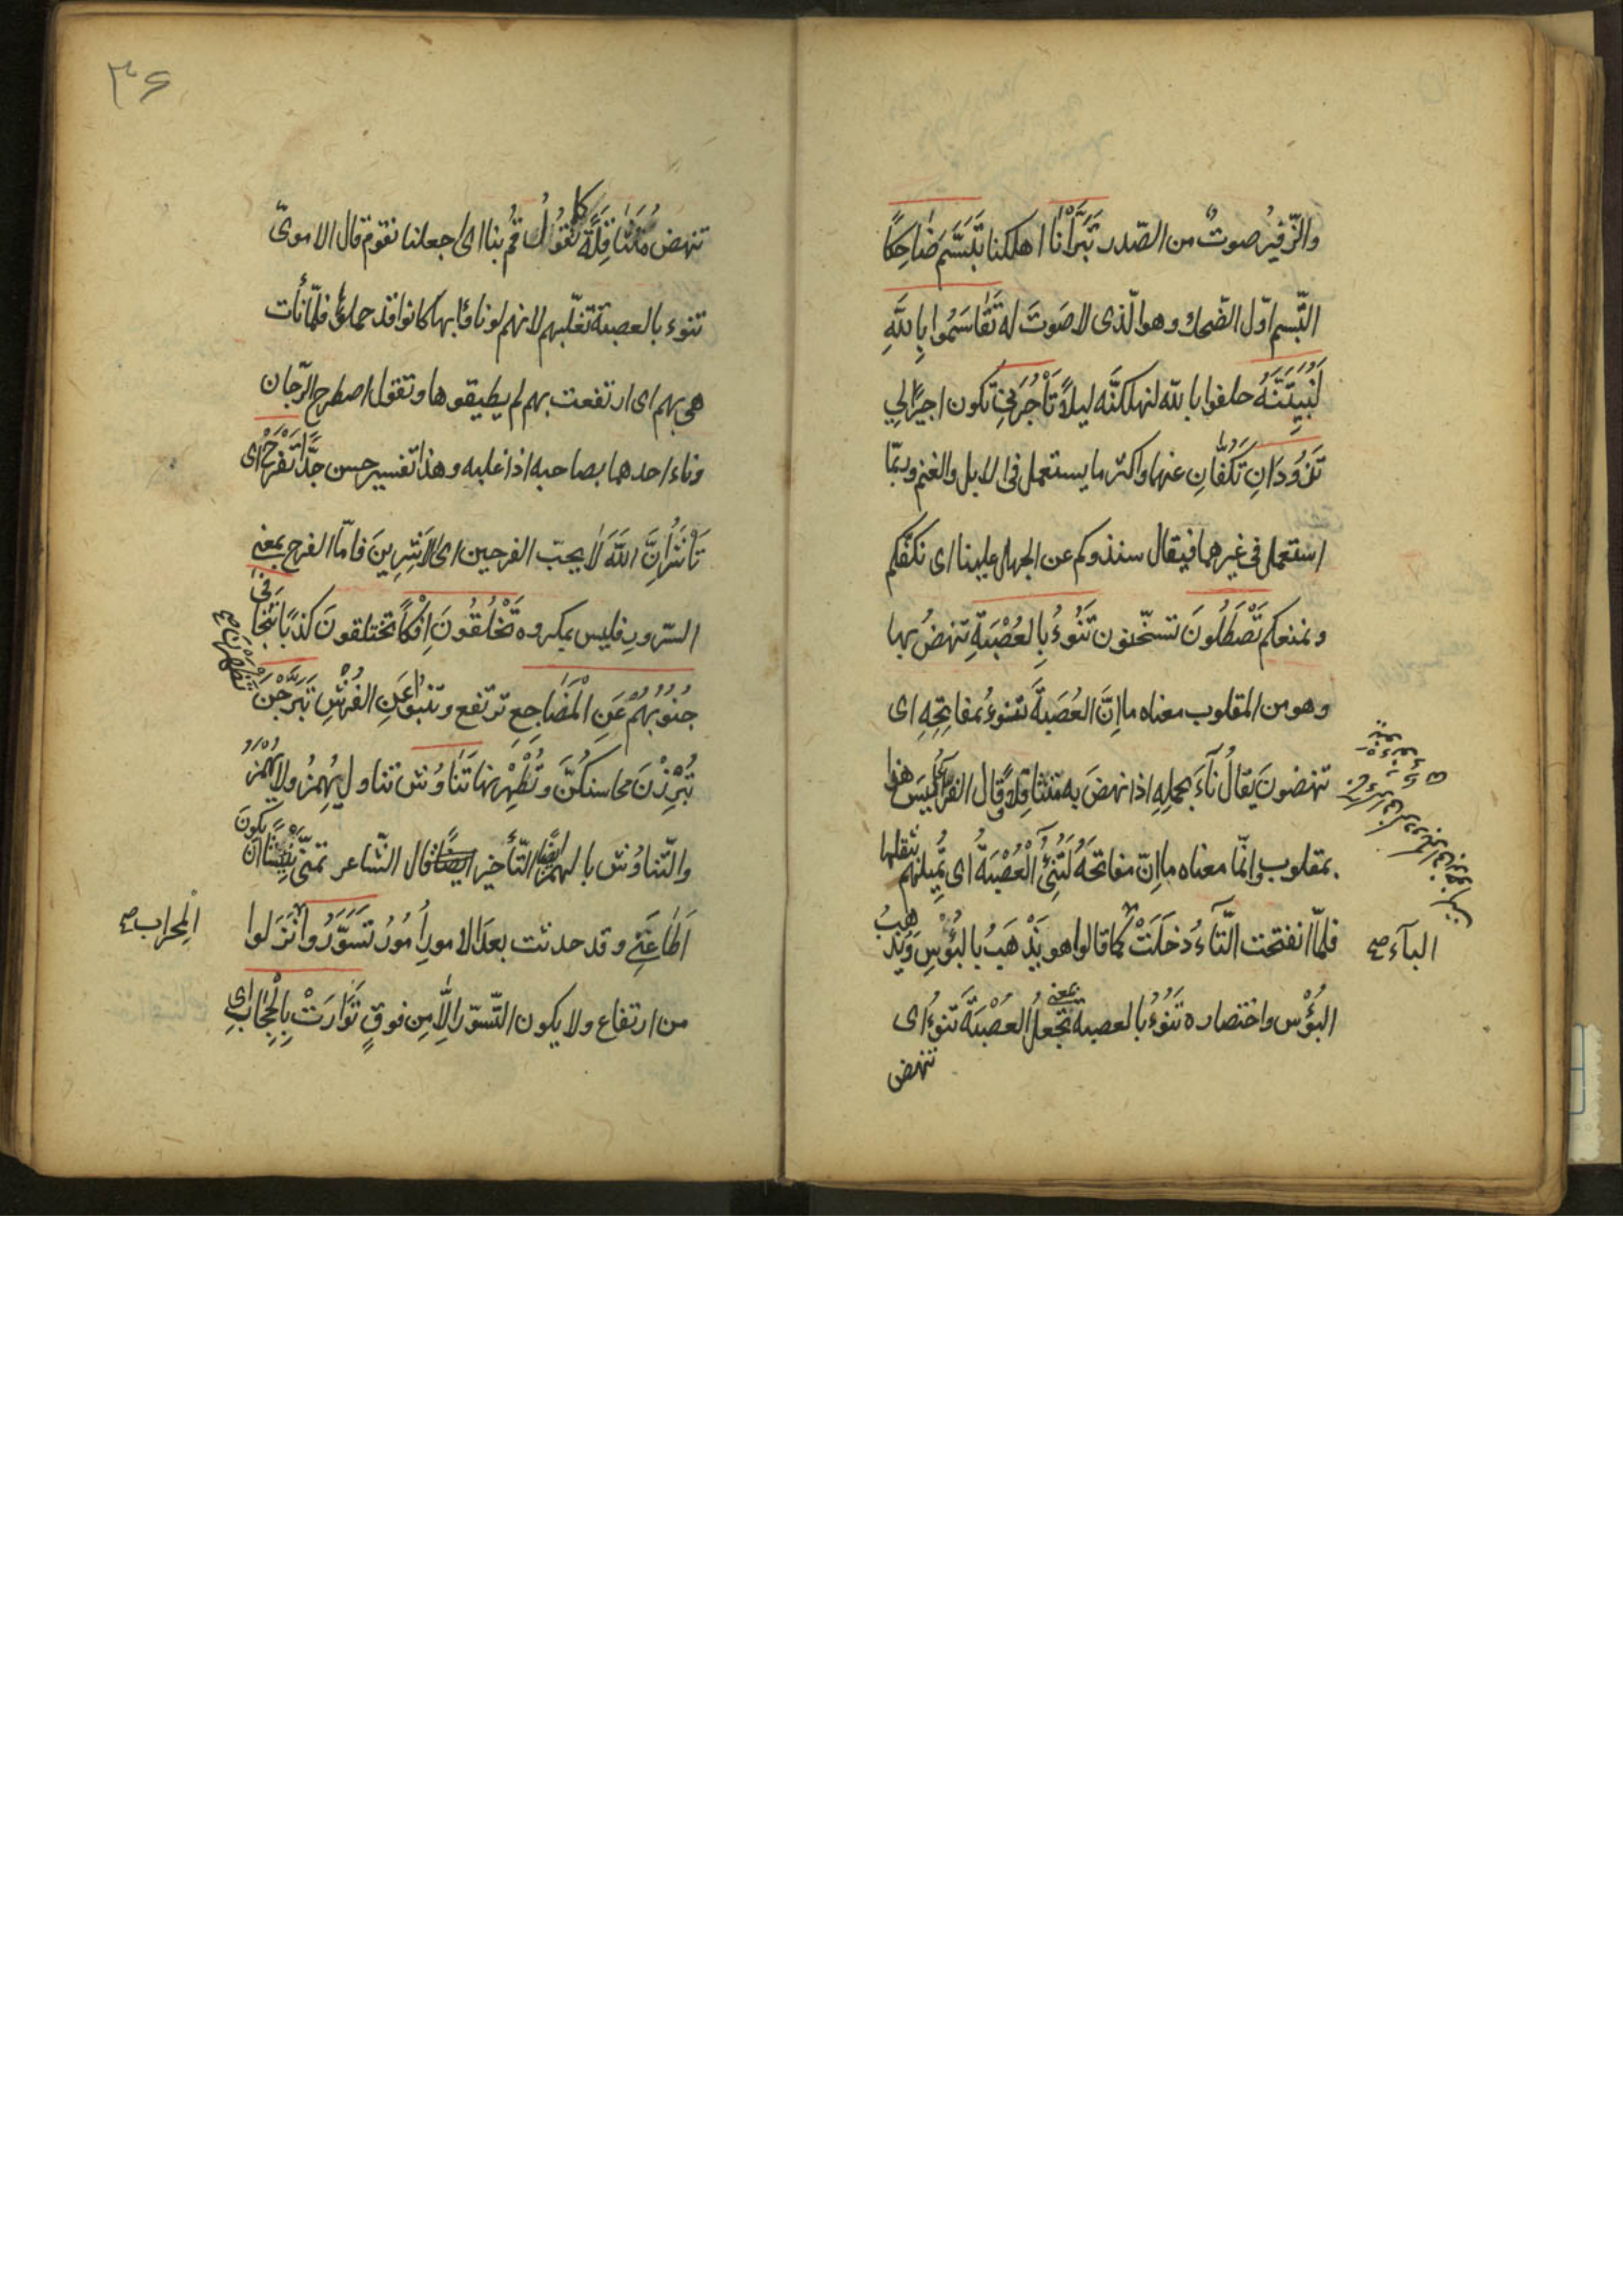 والزّفيرُ صوتٌ من الصّدر تَبَرَّأْنَا اهلكنا تَبَسَّمَ ضَاحِكًا
التّبسم اوّل الضّحك وهو الّذى لا صَوتَ له تَقَاسَمُوا بِاللَّهِ
لَنُبَيِّتَنَّهُ حلفوا بالله لنهلكنَّه ليلاً تَأْجُرَنِي تكون اجيرًا لي
تَذُودَانِ تَكُفَّانِ عنهما واكثر ما يستعمل فى الابل والغنم وربمّا
استعمل فى غيرهما فيقال سنذوكم عن الجهل علينا اى نكفّكم
ونمنعكم تَصْطَلُونَ تسخّنون تَنُوءُ بِالعُصْبَةِ تنهضُ بها
وهو من المقلوب معناه ما اِنَّ العُصَبةَ تنوءُ بمفاتِحِهِ اى
تنهضون يقالُ نآءَ بحِملِهِ اذا نهضَ به متثاقِلاً وقال الفرّاء ليسَ هذا
بمقلوب وانّما معناه ما اِنّ مفاتحَهُ لَتُنِئُ الْعُصْبَةُ اى تُميلهُم بثقلها
فلمّا انفتحت التّآءُ دخلَتْ كما قالوا هو يَذْهَبُ بالبُؤْسِ ويُذهِبُ
البآء صح
البُؤْس واختصاره تَنُوْءُ بالعصبة بمعنى تجعلُ العُصْبَةَ تنوءُ اى
تنهض
۳۶
تنهضُ مُتَثَاقِلَةً كما تقُولُ قُم بنا اى اجعلنا نقوم قال الاموىّ
تنوء بالعصبة تغلّبهم لانهم لو ناؤا بها كانوا قد حملوها فلمّا نأت
هى بهم اى ارتفعت بهم لم يطيقوها وتقول اصطرح الرّجلان
وناء احدهما بصاحبه اذا غلبه وهذا تفسير حسن جدًّا تَفْرَحْ اى
تَأْشَرْ اِنَّ اللَّهَ لَا يحبّ الفرحين اى الاَشِرِينَ فامّا الفرح بمعنى
السّرورِ فليس بمكروه تَخْلُقُونَ اِفْكاً تختلقونَ كذبًا تتجافى
جُنُوبُهُمْ عَنِ الْمَضَاجِعِ ترتفع وتنبوا عَنِ الفُرُشِ تَبَرَّجْنَ
تُبْرِزْنَ محاسنكُنَّ وتُظْهِرْنها تَنَاوُش تناول يُهمزُ ولا يُهْمَزُ
والتّناوُش بالهمز ايضًا التّأخير قال الشّاعر تمنّى نَئِيشًا ان يكونَ
اَطَاعَنِي وقد حدثت بعدَ الامورِ اُمُورُ تَسَوَّرُوا نَزَلوا
الْمِحرابَ صح
من ارتفاع ولا يكون التّسوّر اِلَّا مِن فوقٍ تَوَارَتْ بِالْحِجَابِ اى